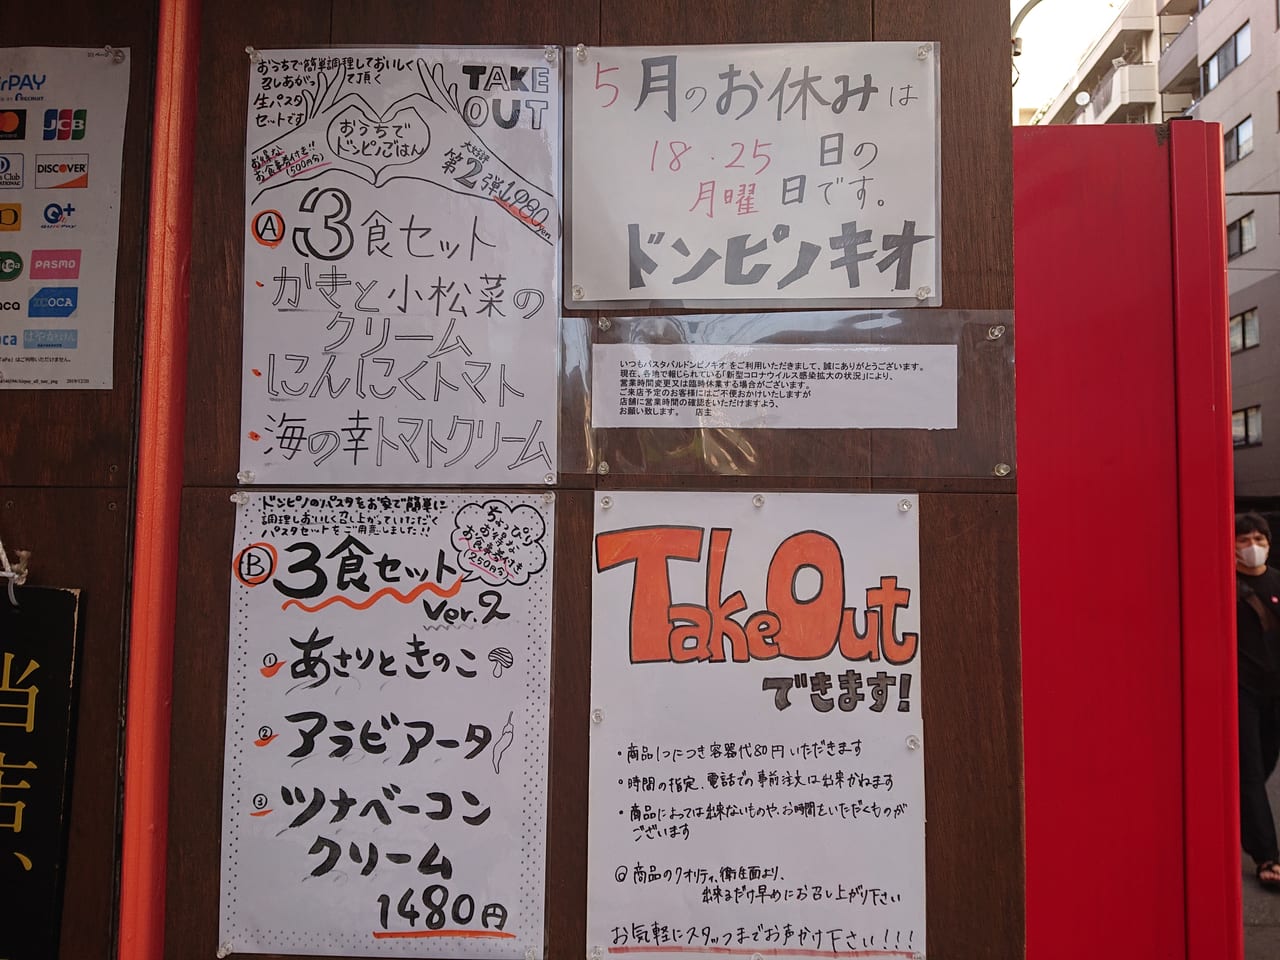 おうちで簡単調理しておいしく
召しあがって頂く
生パスタ
セットです
TAKE
OUT
おうちで
ドンピノごはん
お得な
お食事券付き!!
(500円分)
大好評
第2弾 1980yen
Ⓐ 3食セット
・かきと小松菜の
クリーム
・にんにくトマト
・海の幸トマトクリーム
5月のお休みは
18・25日の
月曜日です。
ドンピノキオ
いつもパスタバルドンピノキオ をご利用いただきまして、誠にありがとうございます。
現在、各地で報じられている「新型コロナウイルス感染拡大の状況」により、
営業時間変更又は臨時休業する場合がございます。
ご来店予定のお客様にはご不便おかけいたしますが
店舗に営業時間の確認をいただけますよう、
お願い致します。 店主
ドンピノのパスタをお家で簡単に
調理しおいしく召し上がっていただく
パスタセットをご用意しました!!
ちょっぴり
お得な
お食事券付き
(250円分)
Ⓑ 3食セット
ver.2
① あさりときのこ
② アラビアータ
③ ツナベーコン
クリーム
1480円
TakeOut
できます!
・商品1つにつき容器代80円いただきます
・時間の指定、電話での事前注文は出来かねます
・商品によっては出来ないものや、お時間をいただくものが
ございます
◎商品のクオリティ、衛生面より、
出来るだけ早めにお召し上がり下さい
お気軽にスタッフまでお声かけ下さい!!!
rPAY
JCB
DISCOVER
QUICPay
PASMO
ICOCA
はやかけん
2019/12/20
当店、